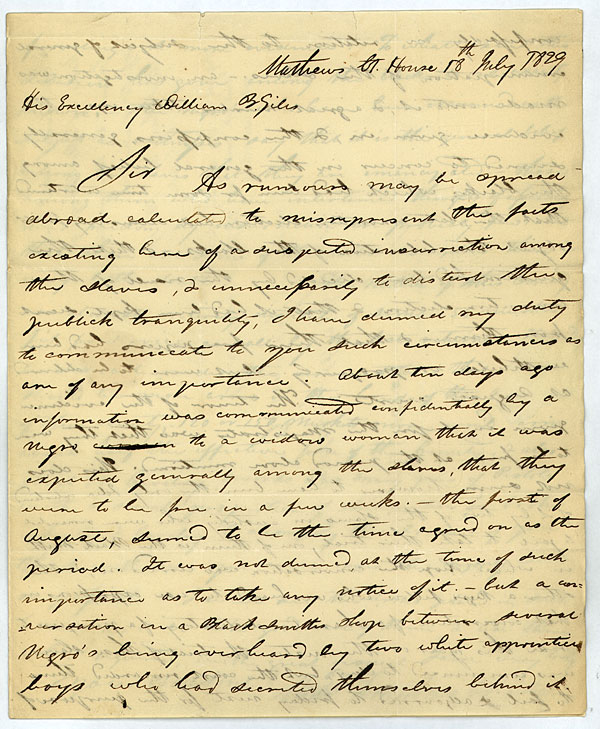 Mathews Ct. House 18th July 1829
His Excellency William B. Giles
Sir As rumours may be spread
abroad calculated to misrepresent the facts
existing here of a suspected insurrection among
the slaves, & unnecessarily to disturb the
publick tranquility, I have deemed my duty
to communicate to you such circumstances as
are of any importance. About ten days ago
information was communicated confidentially by a
Negro to a widow woman that it was
expected generally among the slaves, that they
were to be free in a few weeks. – the first of
August, seemed to be the time agreed on as the
period. It was not deemed at the time of such
importance as to take any notice of it. – but a con=
=versation in a Black Smiths Shop between several
Negro's being overheard by two white apprentice
boys who had secreted themselves behind it